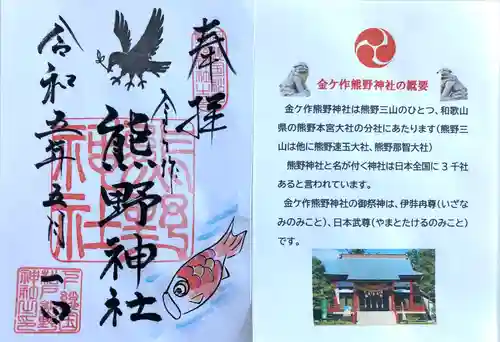 奉拝
金ケ作
熊野神社
令和五年五月一日
金ケ作熊野神社の概要
金ケ作熊野神社は熊野三山のひとつ、和歌山
県の熊野本宮大社の分社にあたります(熊野三
山は他に熊野速玉大社、熊野那智大社)
熊野神社と名が付く神社は日本全国に3千社
あると言われています。
金ケ作熊野神社の御祭神は、伊弉冉尊(いざな
みのみこと)、日本武尊(やまとたけるのみこと)
です。